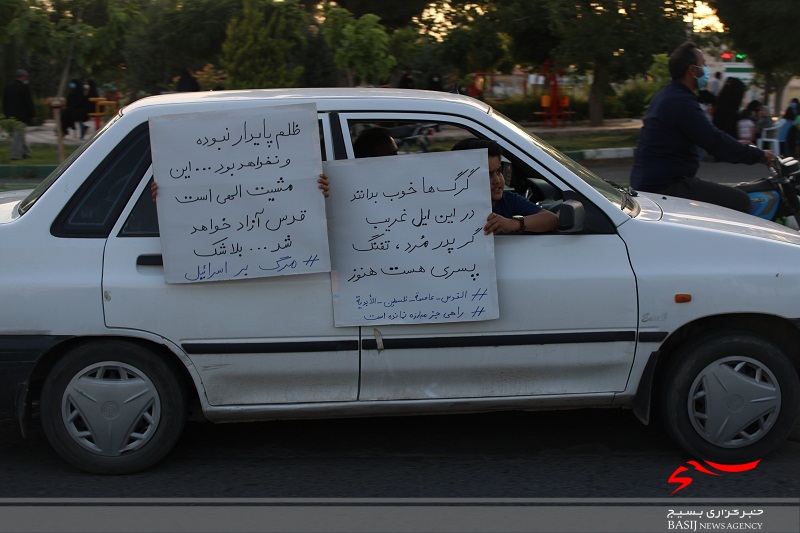 ظلم پایدار نبوده
و نخواهد بود... این
مشیت الهی است
قدس آزاد خواهد
شد... بلاشک
# مرگ بر اسرائیل
گرگ ها خوب بدانند
در این ایل غریب
گر پدر مُرد، تفنگ
پسری هست هنوز
# القدس-عاصمة-فلسطین-الأبدیة
# راهی جز مبارزه نمانده است
خبرگزاری بسیج
BASIJ NEWS AGENCY